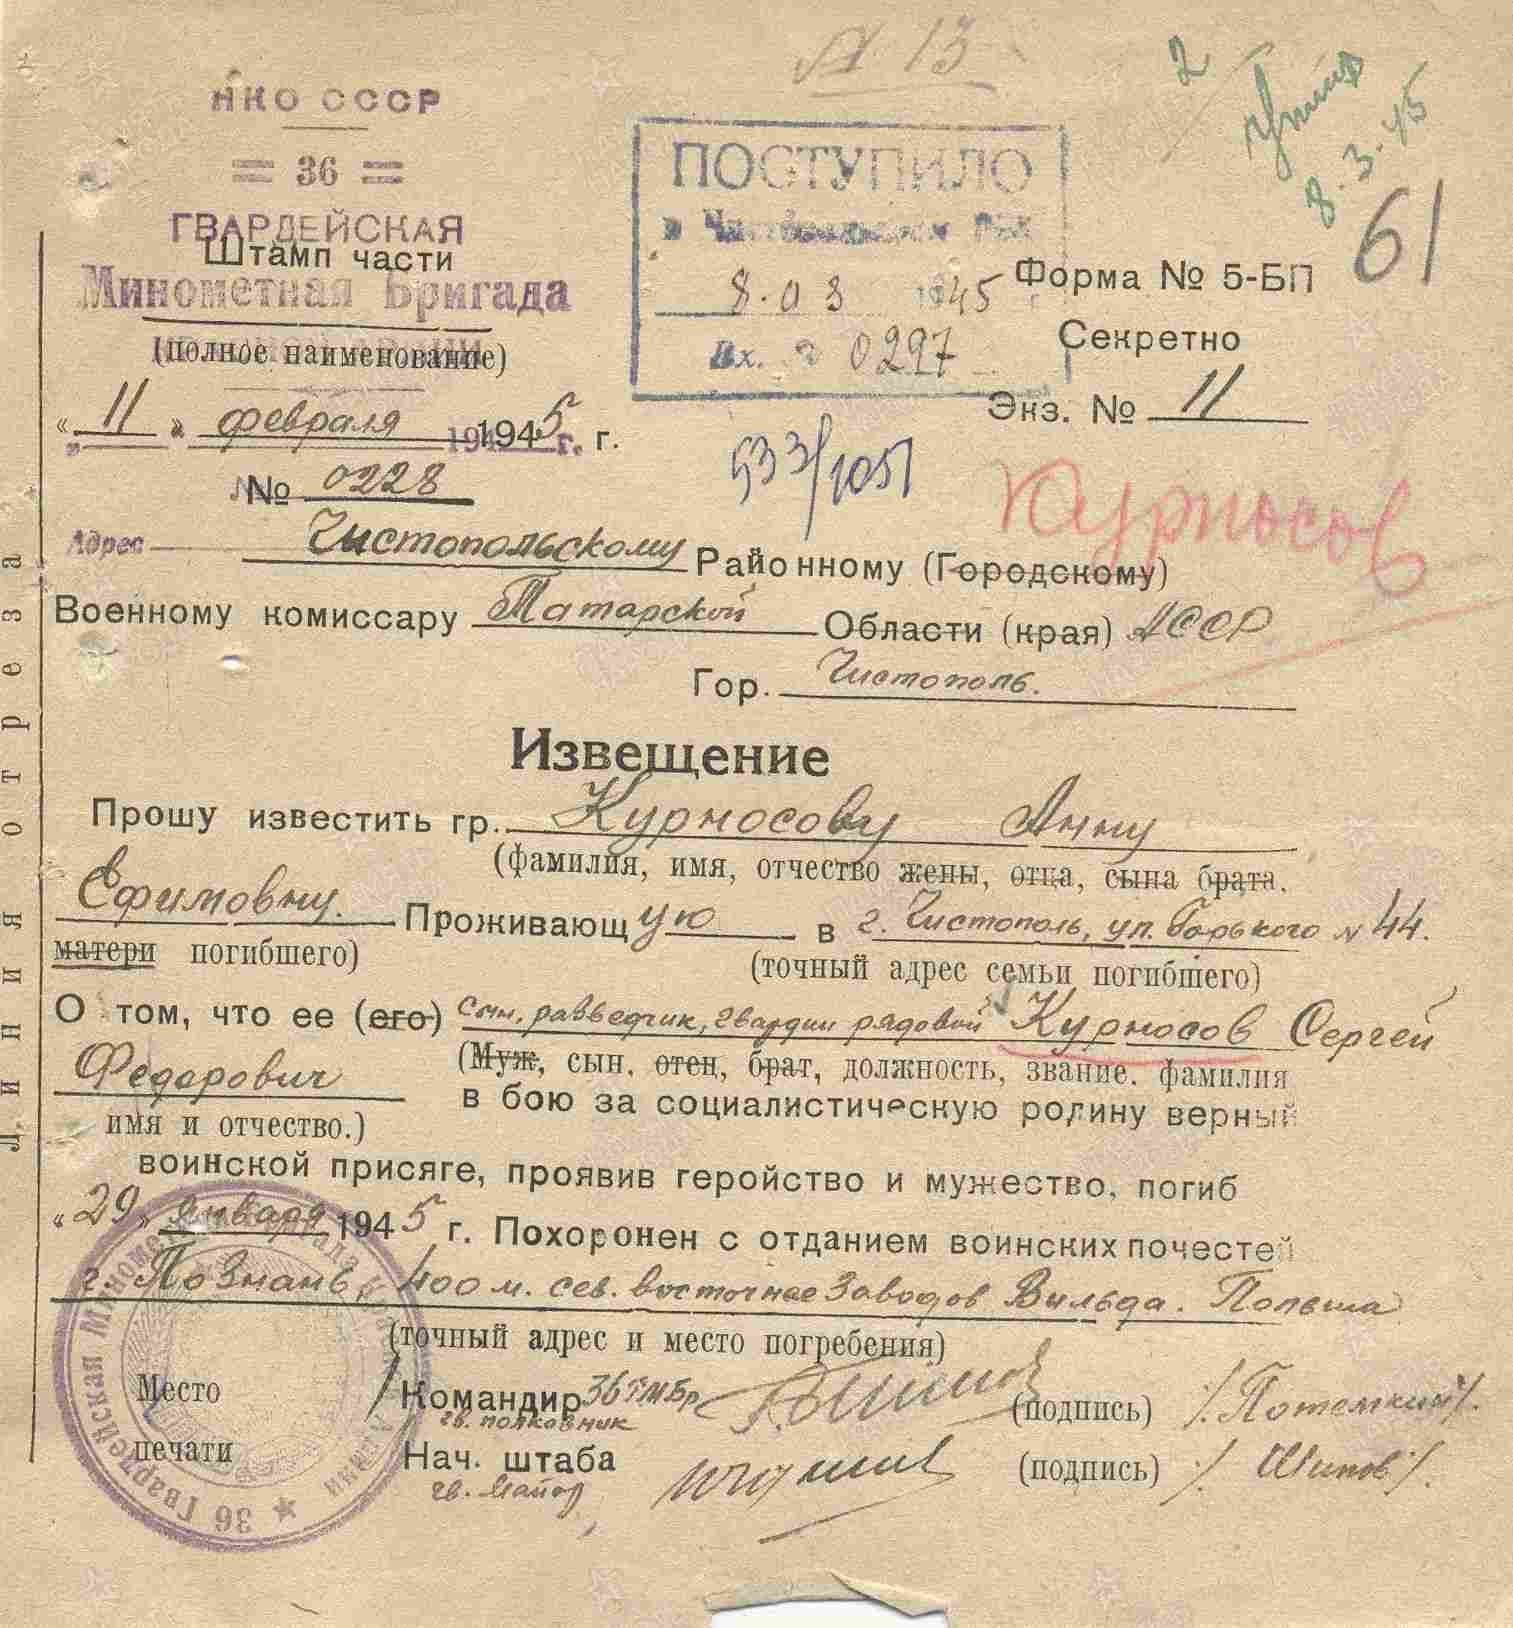 А 13
2
8.3.45
61
НКО СССР
= 36 =
ГВАРДЕЙСКАЯ
Штамп части
Минометная Бригада
(полное наименование)
ПОСТУПИЛО
в
8.03 1945 г
Вх. 0297
Форма № 5-БП
Секретно
Экз. № 11
"11" февраля 1945 г.
№ 0228
533/1051
Курносов
Адрес Чистопольскому Районному (Городскому)
Военному комиссару Татарской Области (края) АССР
Гор. Чистополь.
Извещение
Прошу известить гр. Курносову Анну
(фамилия, имя, отчество жены, отца, сына брата.
Ефимовну. Проживающую в г. Чистополь, ул. Горького № 44.
матери погибшего) (точный адрес семьи погибшего)
О том, что ее (его) сын, разведчик, гвардии рядовой Курносов Сергей
(Муж, сын, отец, брат, должность, звание. фамилия
Федорович
в бою за социалистическую родину верный
имя и отчество.)
воинской присяге, проявив геройство и мужество, погиб
"29" января 1945 г. Похоронен с отданием воинских почестей
г. Познань, 400 м. сев. восточнее Заводов Вильда. Польша
(точный адрес и место погребения)
Место Командир 36 ГМБр (подпись) /Потемкин/.
гв. полковник
печати Нач. штаба (подпись) / Шипов/.
гв. Майор
36 Гвардейская Минометная Бригада
Линия отреза